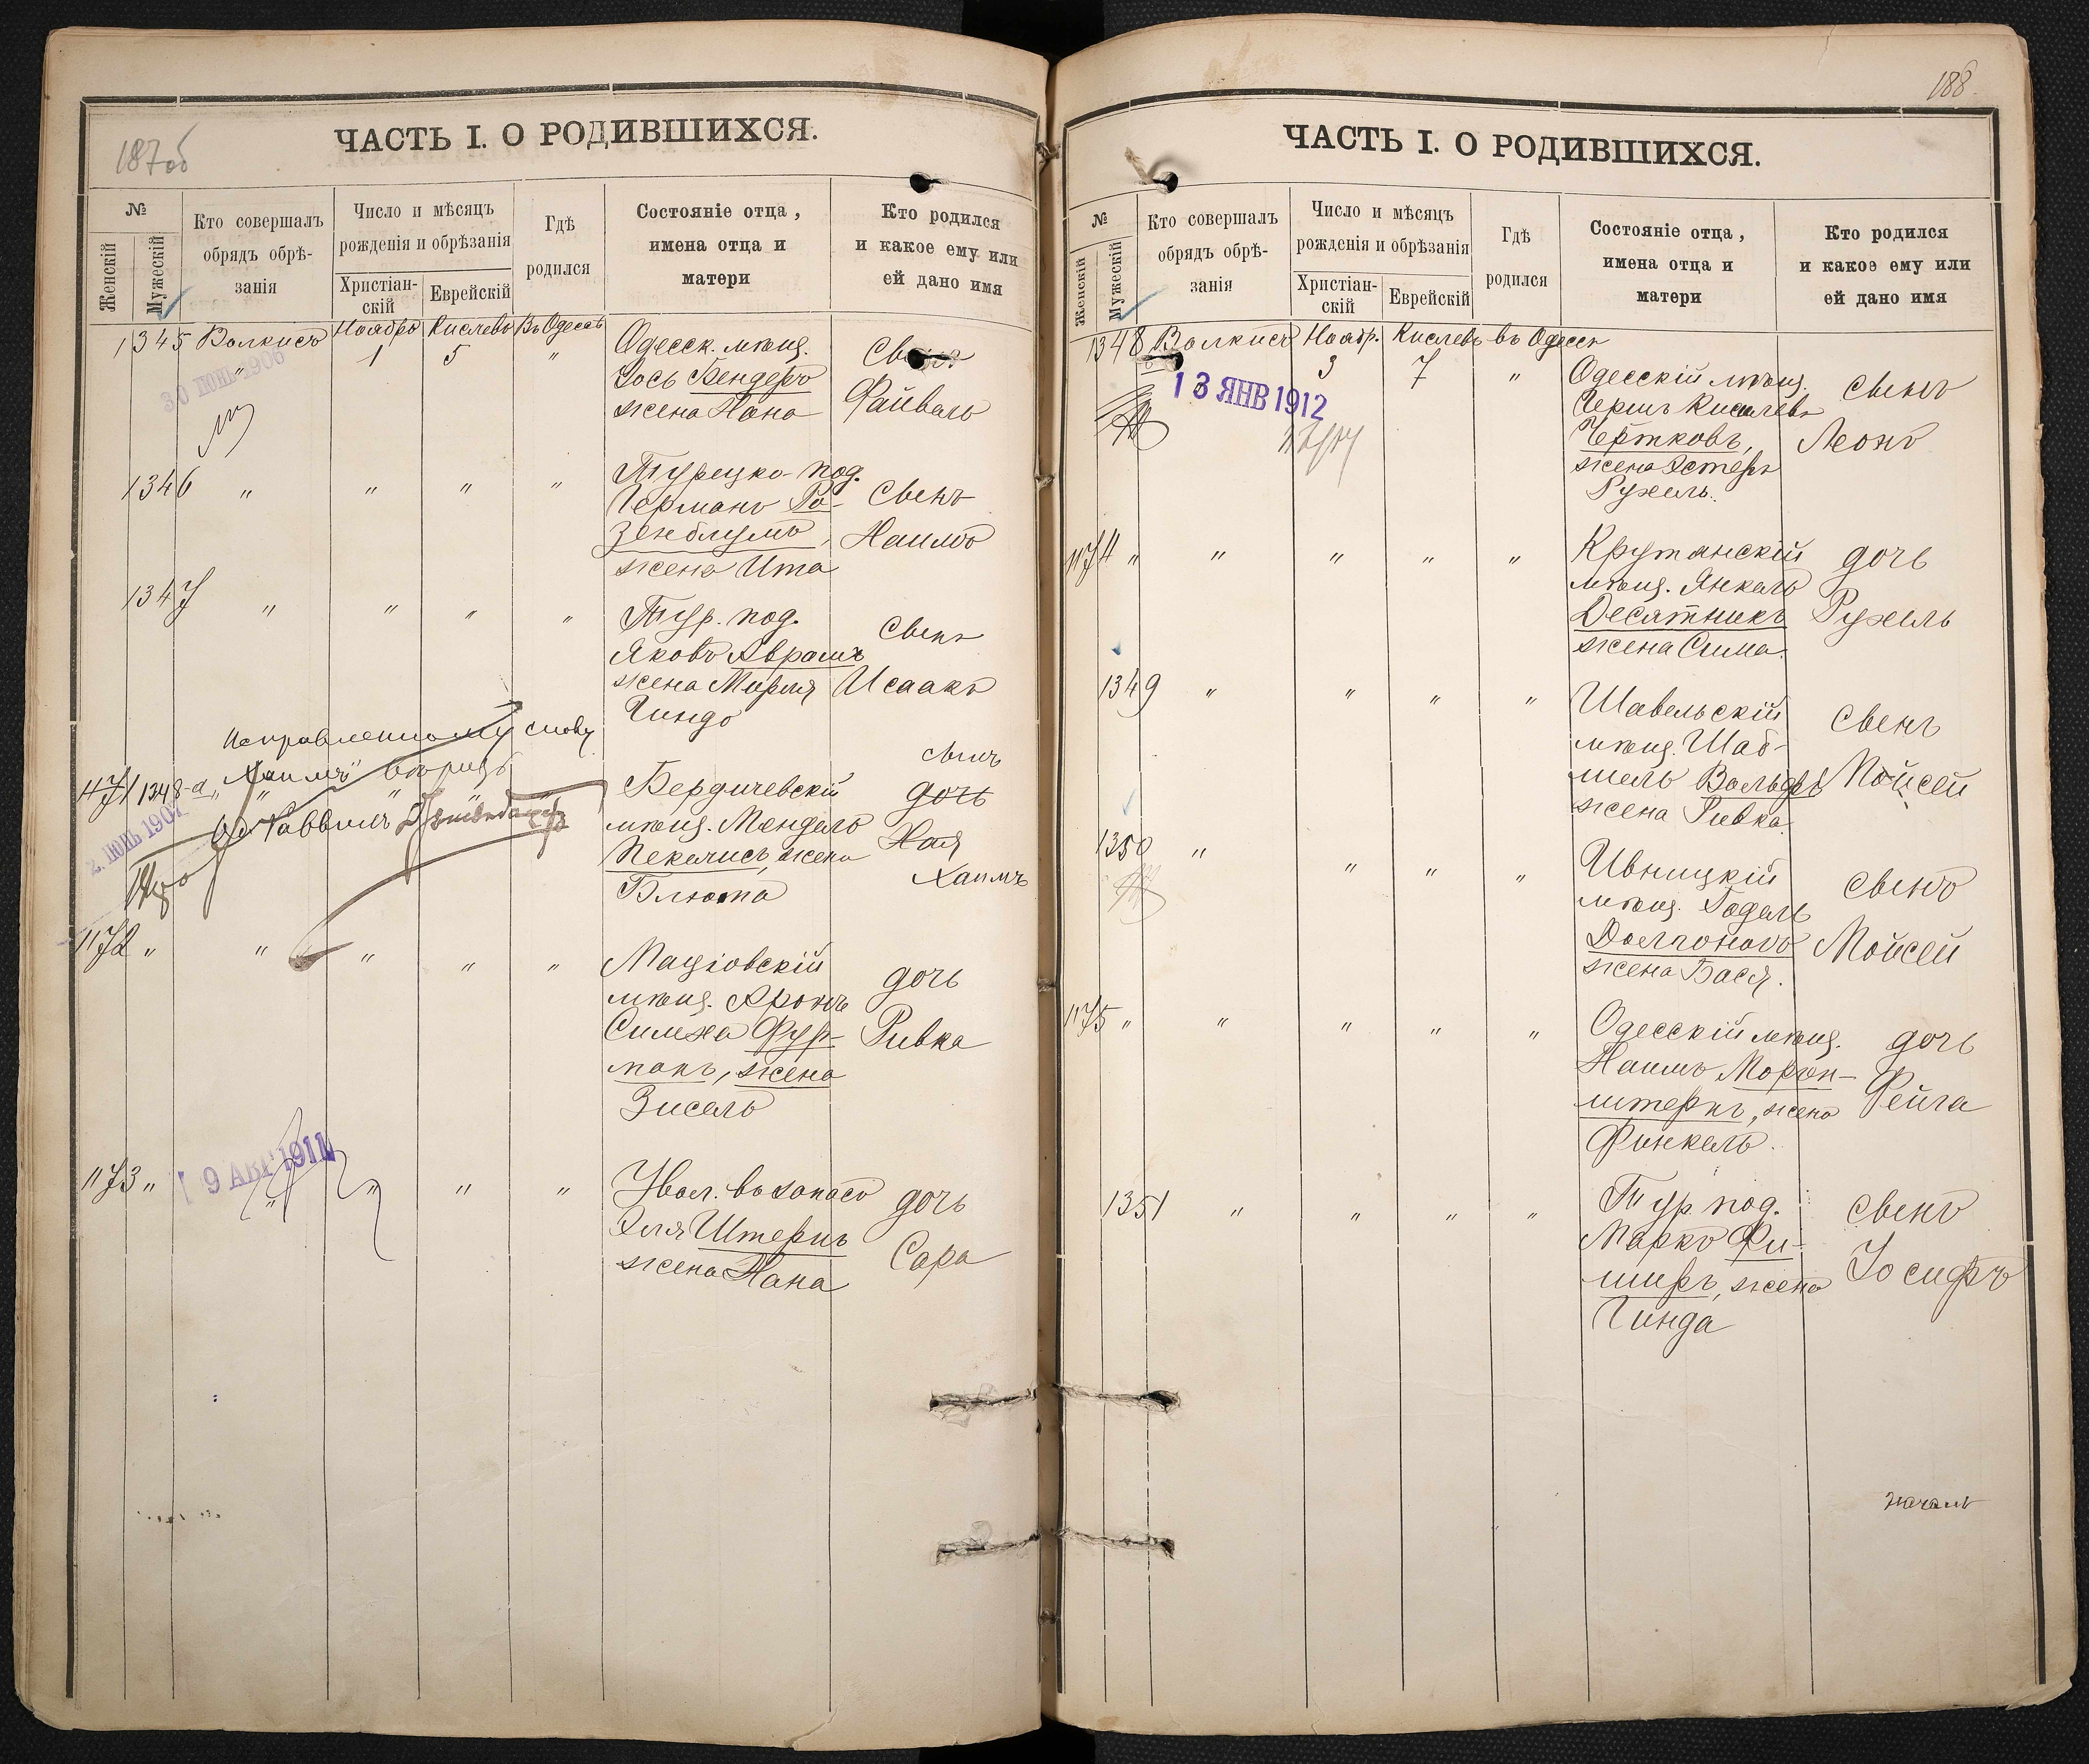 187об
ЧАСТЬ I. О РОДИВШИХСЯ.
№
Женскій
Мужескій
Кто совершалъ
обрядъ обрѣ-
занія
Число и мѣсяцъ
рожденія и обрѣзанія
Христіан-
скій
Еврейскій
Гдѣ
родился
Состояніе отца,
имена отца и
матери
Кто родился
и какое ему или
ей дано имя
1345 Валкисъ Ноября Кислевъ Въ Одессѣ
30 ІЮНЬ 1906
" 1 5 "
Одесск. мѣщ.
Іось Бендеръ
жена Хана
Сынъ
Файвель
1346 " " " "
Турецко-под.
Германъ Ро-
зенблумъ,
жена Ита
Сынъ
Хаимъ
1347 " " " "
Тур. под.
Яковъ Аврамъ
жена Мирля
Гинда
Сынъ
Исаакъ
Исправленному слову
"Хаимъ" вѣрить
Раввинъ
1171 1348-а " " " "
2. ІЮНЬ 1907
Бердичевскій
мѣщ. Мендель
Пекелисъ, жена
Блюма
сынъ
дочь
Хая
Хаимъ
1172 " " " " "
Маціовскій
мѣщ. Аронъ
Симха Фур-
манъ, жена
Зисель
дочь
Ривка
1173 " " " " "
9 АВГ 1911
Увол. въ запасъ
Эля Штернъ
жена Хана
дочь
Сара
188.
ЧАСТЬ I. О РОДИВШИХСЯ.
№
Женскій
Мужескій
Кто совершалъ
обрядъ обрѣ-
занія
Число и мѣсяцъ
рожденія и обрѣзанія
Христіан-
скій
Еврейскій
Гдѣ
родился
Состояніе отца,
имена отца и
матери
Кто родился
и какое ему или
ей дано имя
1348 Валкисъ Ноябр. Кислевъ въ Одессѣ
3 7 "
13 ЯНВ 1912
Одесскій мѣщ.
Гершъ Киселевъ
Чертковъ,
жена Эстеръ
Рухель.
Сынъ
Леонъ
1174 " " " " "
Крутянскій
мѣщ. Янкель
Десятникъ
жена Сима.
дочь
Рухель
1349 " " " "
Шавельскій
мѣщ. Шаб-
шель Вольфъ
жена Ривка.
Сынъ
Мойсей
1350 " " " "
Ивницкій
мѣщ. Годель
Долгоновъ
жена Бася.
Сынъ
Мойсей
1175 " " " " "
Одесскій мѣщ.
Хаимъ Морген-
штернъ, жена
Финкель.
дочь
Фейга
1351 " " " "
Тур. под.
Марко Фи-
шеръ, жена
Гинда
Сынъ
Іосифъ